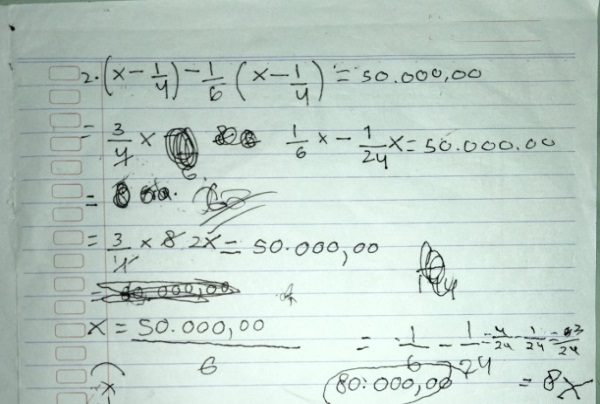 2. (x - 1/4) - 1/6 (x - 1/4) = 50.000,00
= 3/4 x 1/6 x - 1/24 x = 50.000.00
=
= 3/4 x 8 2x = 50.000,00
x = 50.000,00 / 6
= 1/6 - 1/24 = 4/24 - 1/24 = 3/24
80.000,00 = 8x
x